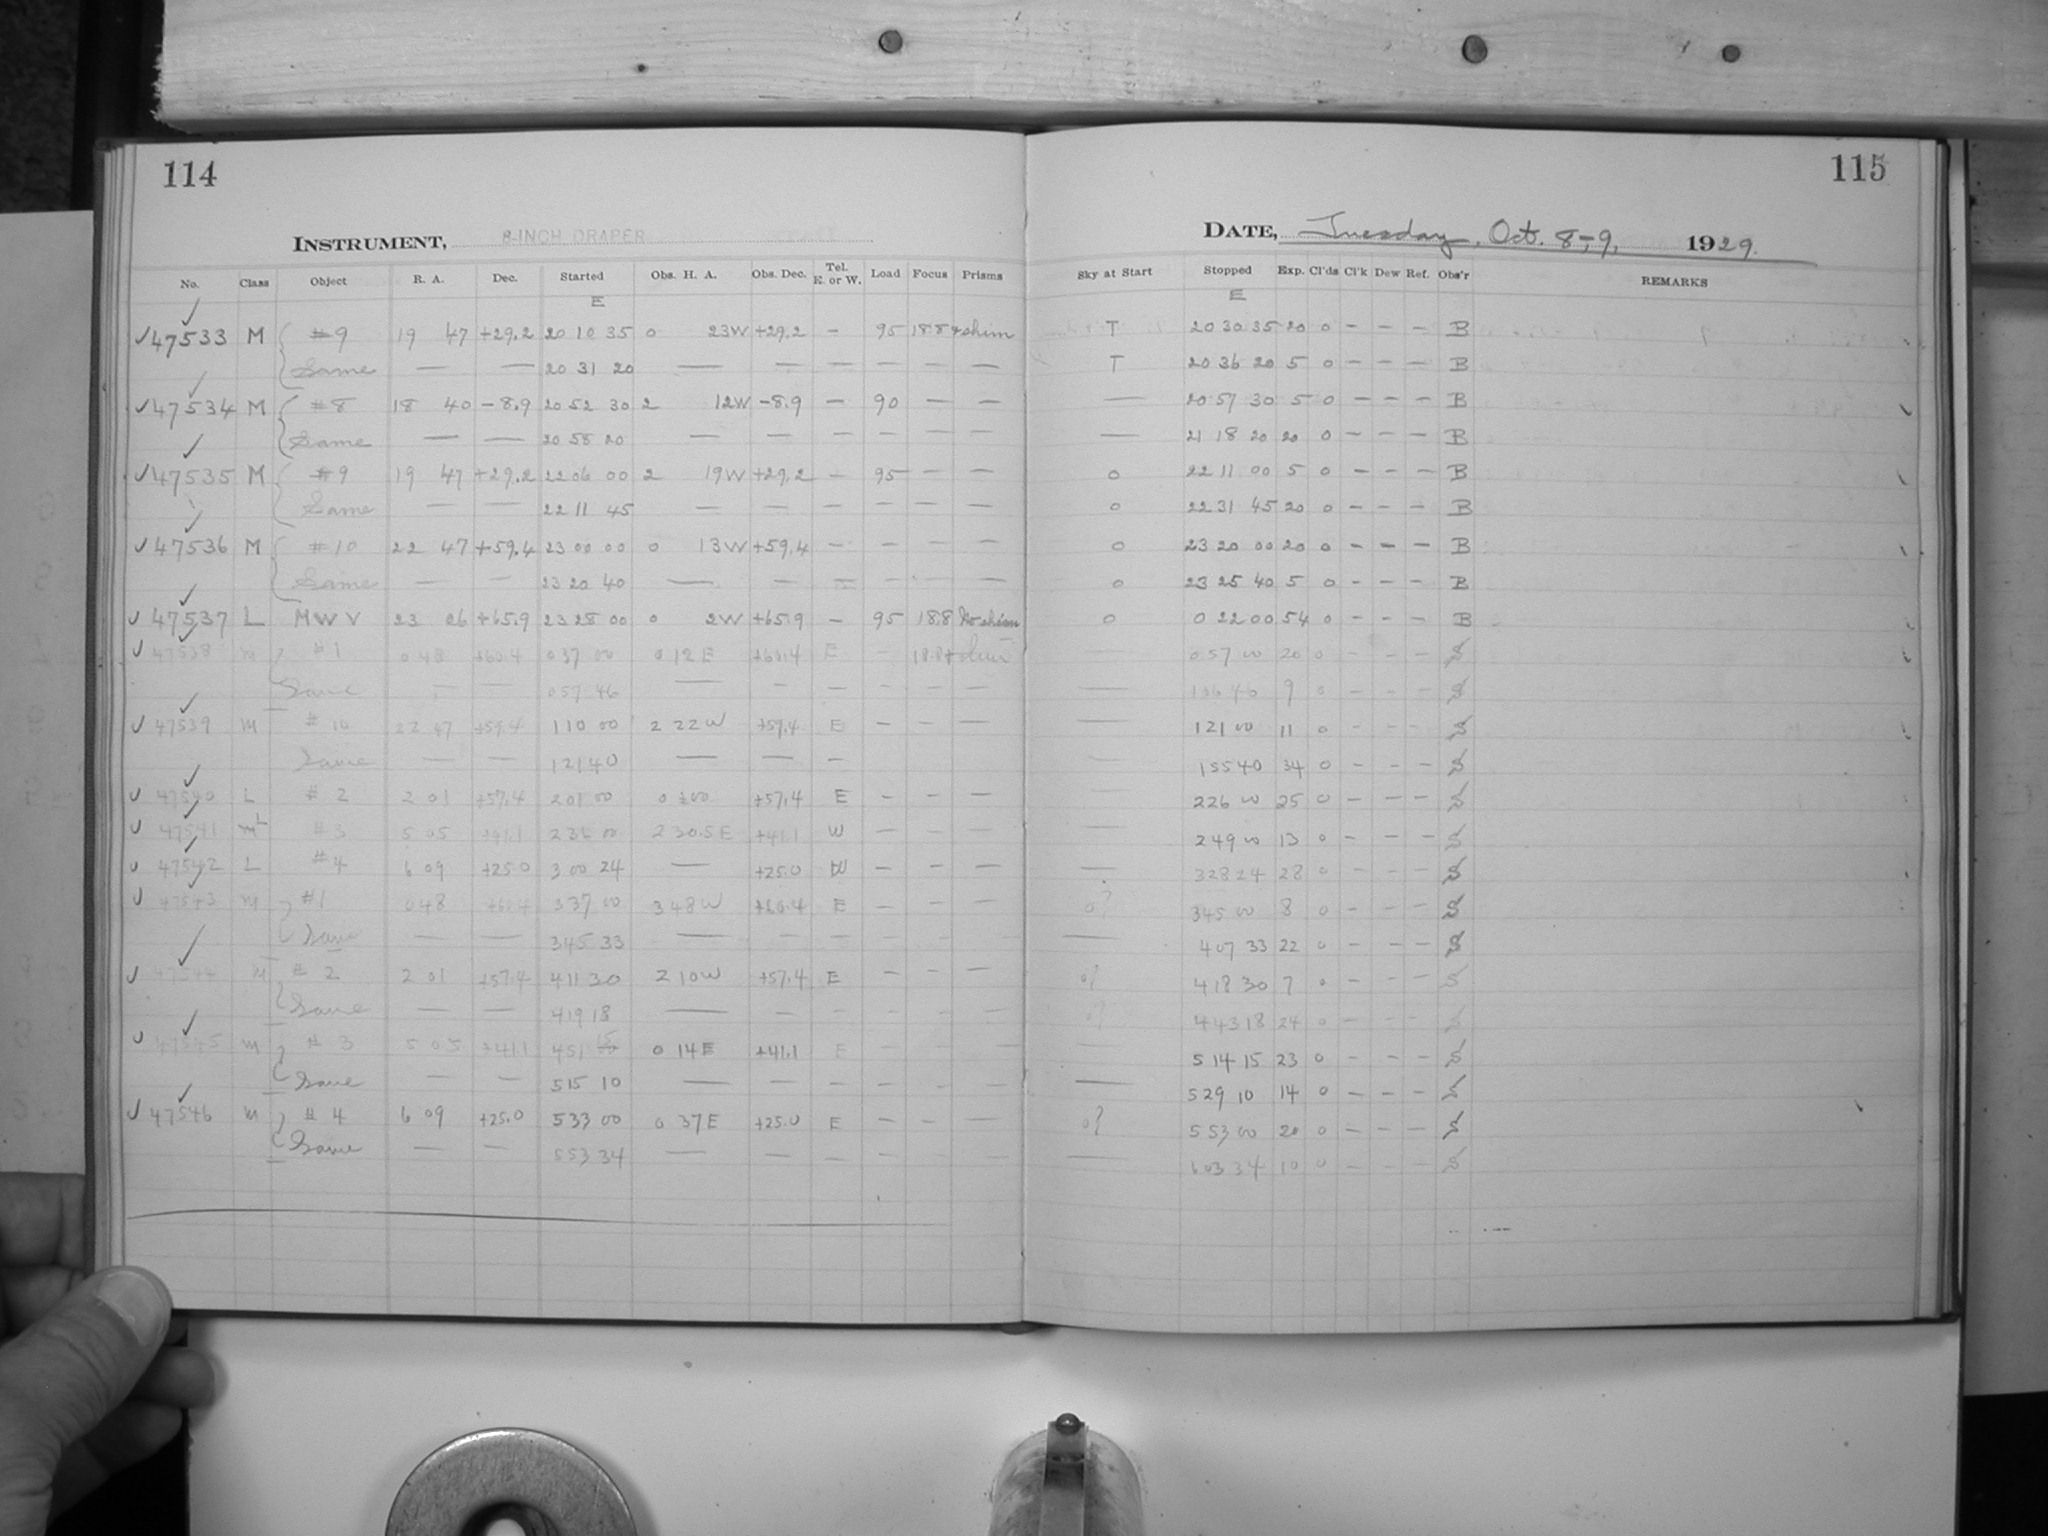 114
INSTRUMENT, 8-INCH DRAPER
No. Class Object R. A. Dec. Started Obs. H. A. Obs. Dec. Tel. E. or W. Load Focus Prisms
E
47533 M #9 19 47 +29.2 20 10 35 0 23W +29.2 - 95 18.8 + shim
Same — — 20 31 20 — — — — — —
47534 M #8 18 40 -8.9 20 52 30 2 12W -8.9 - 90 — —
Same — — 20 58 20 — — — — — —
47535 M #9 19 47 +29.2 22 06 00 2 19W +29.2 - 95 — —
Same — — 22 11 45 — — — — — —
47536 M #10 22 47 +59.4 23 00 00 0 13W +59.4 — — — —
Same — — 23 20 40 — — — — — —
47537 L MWV 23 26 +65.9 23 28 00 0 2W +65.9 - 95 18.8 No shim
47538 M #1 0 48 +60.4 0 37 00 0 12 E +60.4 E - 18.8+ shim
Same — — 0 57 46 — — — — — —
47539 M #10 22 47 +59.4 1 10 00 2 22W +59.4 E — — —
Same — — 1 21 40 — — —
47540 L #2 2 01 +57.4 2 01 00 0 00 +57.4 E — — —
47541 L #3 5 05 +41.1 2 36 00 2 30.5 E +41.1 W — — —
47542 L #4 6 09 +25.0 3 00 24 — +25.0 W — — —
47543 M #1 0 48 +60.4 3 37 00 3 48 W +60.4 E — — —
Same — — 3 45 33 — — — — — —
47544 M #2 2 01 +57.4 4 11 30 2 10 W +57.4 E — — —
Same — — 4 19 18 — — — — — —
47545 M #3 5 05 +41.1 4 51 15 0 14 E +41.1 E — — —
Same — — 5 15 10 — — — — — —
47546 M #4 6 09 +25.0 5 33 00 0 37 E +25.0 E — — —
Same — — 5 53 34 — — — — — —
115
DATE, Tuesday, Oct. 8-9, 1929.
Sky at Start Stopped Exp. Cl'ds Cl'k Dew Ref. Obs'r REMARKS
E
T 20 30 35 20 0 - - - B
T 20 36 20 5 0 - - - B
— 20 57 30 5 0 - - - B
— 21 18 20 20 0 - - - B
0 22 11 00 5 0 - - - B
0 22 31 45 20 0 - - - B
0 23 20 00 20 0 - - - B
0 23 25 40 5 0 - - - B
0 0 22 00 54 0 - - - B
— 0 57 00 20 0 - - - S
— 1 06 46 9 0 - - - S
— 1 21 00 11 0 - - - S
— 1 55 40 34 0 - - - S
— 2 26 00 25 0 - - - S
— 2 49 00 13 0 - - - S
— 3 28 24 28 0 - - - S
0? 3 45 00 8 0 - - - S
— 4 07 33 22 0 - - - S
0? 4 18 30 7 0 - - - S
0? 4 43 18 24 0 - - - S
— 5 14 15 23 0 - - - S
— 5 29 10 14 0 - - - S
0? 5 53 00 20 0 - - - S
— 6 03 34 10 0 - - - S